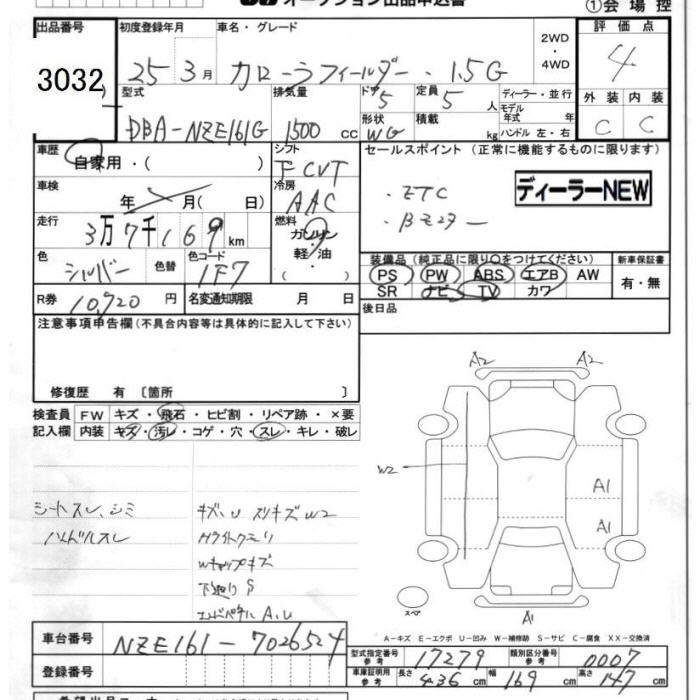 オークション出品申込書
①会場控
出品番号 初度登録年月 車名・グレード 2WD・4WD 評価点
3032 25 3月 カローラフィールダー・1.5G 4
型式 排気量 ドア 定員 ディーラー・並行 外装 内装
DBA-NZE161G 1500cc 5 5人 モデル年式 年 C C
形状 積載
WG kg ハンドル 左・右
車歴 自家用・( ) シフト FCVT セールスポイント (正常に機能するものに限ります)
車検 年 月( 日) 冷房 AAC ・ETC ディーラーNEW
走行 3万7千169km 燃料 ガソリン・軽油・( )
色 シルバー 色替 色コード 1F7
装備品 (純正品に限り○をつけてください) 新車保証書
PS PW ABS エアB AW 有・無
SR ナビ TV カワ
R券 10,920円 名変通知期限 月 日 後日品
注意事項申告欄(不具合内容等は具体的に記入して下さい)
修復歴 有 〔箇所 〕
検査員記入欄 FW キズ・飛石・ヒビ割・リペア跡・×要
内装 キズ・汚レ・コゲ・穴・スレ・キレ・破レ
A2 A2
W2
A1
A1
シートスレ、シミ キズ、U スリキズW2
ハンドルスレ
Wキャップキズ
下廻りS
A、U
スペア
A1
A-キズ E-エクボ U-凹み W-補修跡 S-サビ C-腐食 XX-交換済
車台番号 NZE161-7026524
型式指定番号 参考 17279 類別区分番号 参考 0007
登録番号 車庫証明用 参考 長さ 436cm 幅 169cm 高さ 147cm